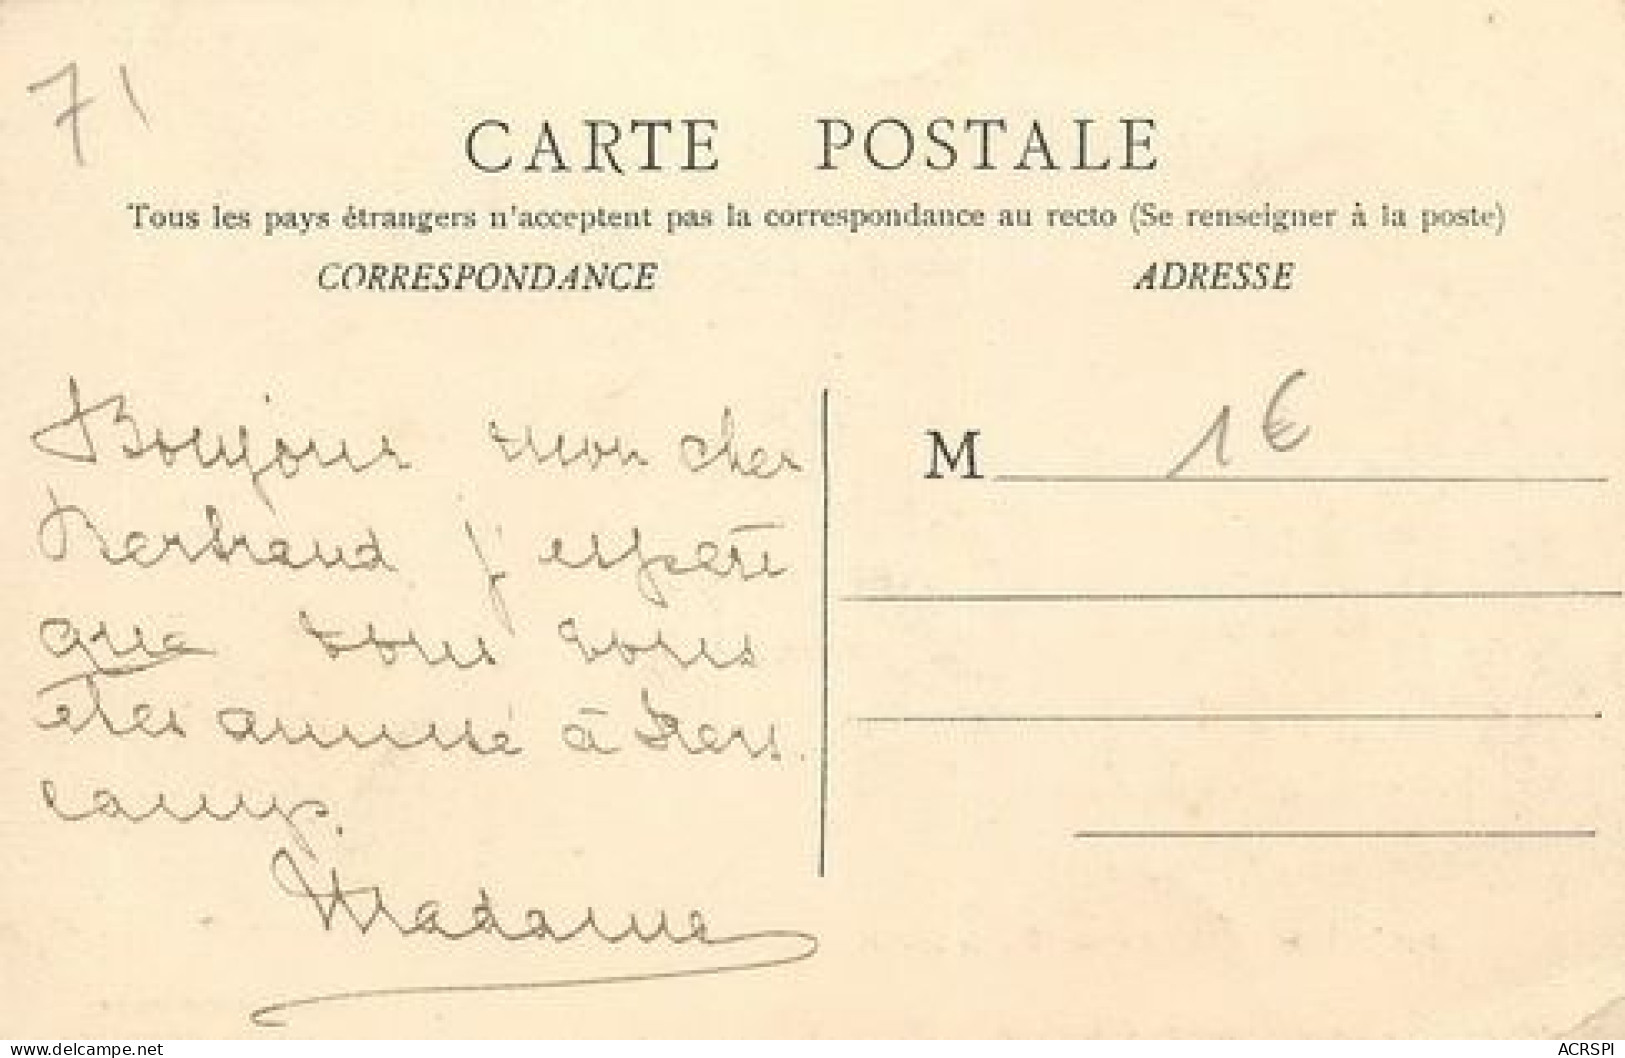 71
CARTE POSTALE
Tous les pays étrangers n'acceptent pas la correspondance au recto (Se renseigner à la poste)
CORRESPONDANCE
ADRESSE
Bonjour mon cher
j'espère
que vous vous
êtes amusé à
camp.
Madame
M
1€
www.delcampe.net
ACRSPI